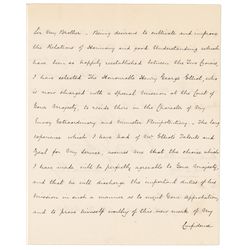 Sir My Brother - Being desirous to cultivate and improve
the Relations of Harmony and good Understanding which
have been so happily reestablished between the Two Crowns,
I have selected The Honourable Henry George Elliot, who
is now charged with a Special Mission at the Court of
Your Majesty, to reside there in the Character of My
Envoy Extraordinary and Minister Plenipotentiary. The long
experience which I have had of Mr Elliot's Talents and
Zeal for My Service, assures me that the choice which
I have made will be perfectly agreeable to Your Majesty,
and that he will discharge the important duties of his
Mission in such a manner as to merit Your Approbation,
and to prove himself worthy of this new mark of My
Confidence